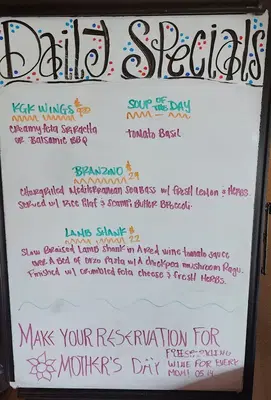 Daily Specials
KGK WINGS $
SOUP OF THE DAY
creamy feta sriracha
or Balsamic BBQ
Tomato Basil
BRANZINO $29
Chargrilled Mediterranean Sea bass w/ fresh lemon & Herbs.
Served w/ Rice Pilaf & Scampi Butter Broccoli.
LAMB SHANK $22
Slow Braised Lamb Shank in a red wine tomato sauce
over a Bed of Orzo Pasta w/ a chickpea mushroom Ragu.
Finished w/ crumbled feta cheese & fresh Herbs.
MAKE YOUR RESERVATION FOR
MOTHER'S DAY
WINE FOR EVERY
MOM!